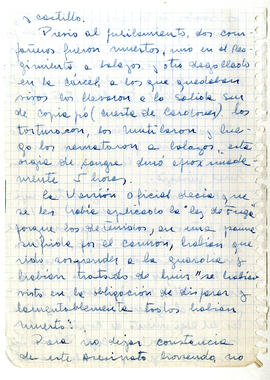 y castillo.
Previo al fusilamiento, dos com
pañeros fueron muertos, uno en el Re-
gimiento a balazos y otro degollado
en la cárcel, a los que quedaban
vivos los llevaron a la salida sur
de Copiapó (cuesta de Cardones), los
torturaron, los mutilaron y lue-
go los remataron a balazos, esta
orgía de sangre duró aproximada-
mente 5 horas.
La Versión oficial decía que
se les había aplicado la "ley de fuga"
porque los detenidos, en una panne
sufrida por el camión, habían que
rido sorprender a la guardia y
habían tratado de huir "se habían
visto en la obligación de disparar y
lamentablemente todos habían
muerto".
Para no dejar constancia
de este asesinato horrendo, no